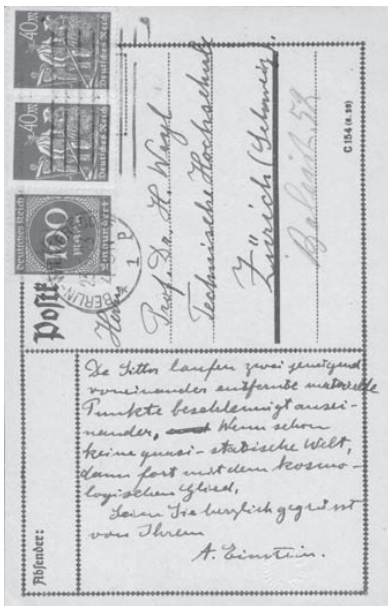 40M
Deutsches Reich
40M
Deutsches Reich
Deutsches Reich
100
Mark
Einhundert
BERLIN
1 P
Postk
Herrn
Prof. Dr. H. Weyl
Technische Hochschule
Zürich (Schweiz)
C 154
De Sitter laufen zwei genügend
voneinander entfernte materielle
Punkte beschleunigt ausei-
nander. Wenn schon
keine quasi-statische Welt,
dann fort mit dem kosmo-
logischen Glied.
Seien Sie herzlich gegrüsst
von Ihrem
A. Einstein.
Absender: